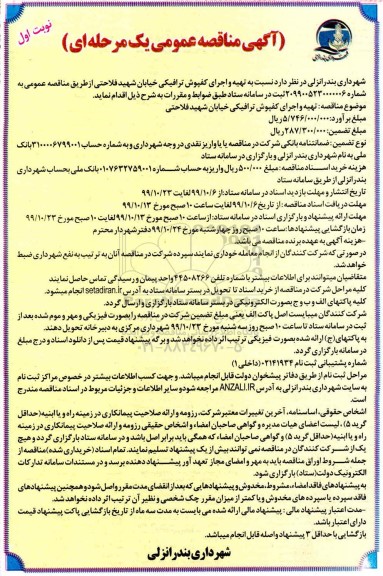 نوبت اول
(آگهی مناقصه عمومی یک مرحله ای)
شهرداری بندرانزلی در نظر دارد نسبت به تهیه و اجرای کفپوش ترافیکی خیابان شهید فلاحتی از طریق مناقصه عمومی به
شماره ۲۰۹۹۰۰۵۲۳۰۰۰۰۰۶ ثبت در سامانه ستاد طبق ضوابط و مقررات به شرح ذیل اقدام نماید.
موضوع مناقصه: تهیه و اجرای کفپوش ترافیکی خیابان شهید فلاحتی
مبلغ برآورد: ۵/۷۴۶/۰۰۰/۰۰۰ ریال
مبلغ تضمین: ۲۸۷/۳۰۰/۰۰۰ ریال
نوع تضمین: ضمانتنامه بانکی شرکت در مناقصه یا یا واریز نقدی در وجه شهرداری و به شماره حساب ۳۱۰۰۰۰۶۷۹۹۰۰۱ بانک
ملی به نام شهرداری بندر انزلی و بارگزاری در سامانه ستاد
هزینه خرید اسناد مناقصه: مبلغ ۵۰۰/۰۰۰ ریال واریز به حساب شماره ۰۱۰۷۶۳۳۷۵۹۰۰۱ بانک ملی بحساب شهرداری
بندر انزلی از طریق سامانه ستاد
تاریخ انتشار و مهلت بازدید اسناد در سامانه ستاد: از ۹۹/۱۰/۶ لغایت ۹۹/۱۰/۲۳
مهلت دریافت اسناد مناقصه: از تاریخ ۹۹/۱۰/۶ لغایت ساعت ۱۰ صبح مورخ ۹۹/۱۰/۱۳
مهلت ارائه پیشنهاد و بارگزاری اسناد در سامانه ستاد: از ساعت ۱۰ صبح مورخ ۹۹/۱۰/۱۳ لغایت ۱۰ صبح مورخ ۹۹/۱۰/۲۳
زمان بازگشایی پیشنهادها: ساعت ۱۰ صبح روز چهارشنبه مورخ ۹۹/۱۰/۲۴ دفتر شهردار محترم
-هزینه آگهی به عهده برنده مناقصه می باشد.
در صورتی که شرکت کنندگان از انجام معامله خودداری نمایند سپرده شرکت در مناقصه آنان به ترتیب به نفع شهرداری ضبط
خواهد شد.
متقاضیان میتوانند برای اطلاعات بیشتر با شماره تلفن ۴۴۵۰۸۲۶۶ واحد پیمان و رسیدگی تماس حاصل نمایند
کلیه مراحل شرکت در مناقصه از خرید اسناد تا تحویل در بستر سامانه ستاد به آدرس setadiran.ir انجام میشود.
کلیه پاکتهای الف و ب و ج بصورت الکترونیکی در بستر سامانه ستاد بارگزاری و ارسال گردد.
شرکت کنندگان میبایست اصل پاکت الف یعنی مبلغ تضمین شرکت در مناقصه را بصورت فیزیکی و مهر و موم شده بعد از
ثبت در سامانه ستاد تا ساعت ۱۰ صبح روز سه شنبه مورخ ۹۹/۱۰/۲۳ شهرداری مرکزی به دبیرخانه تحویل دهند.
به پاکتهای (ج) ارائه شده بصورت فیزیکی ترتیب اثر داده نخواهد شد و برگه پیشنهاد قیمت پس از دانلود اسناد و درج مبلغ
در سامانه بارگزاری گردد.
شماره پشتیبانی ثبت نام ۰۲۱۴۱۹۳۴ (داخلی ۱)
مراحل ثبت نام از طریق دفاتر پیشخوان دولت قابل انجام میباشد. و جهت کسب اطلاعات بیشتر در خصوص مراکز ثبت نام
به سایت شهرداری بندرانزلی به آدرس ANZALI.IR مراجعه شود و سایر اطلاعات و جزئیات مربوط در اسناد مناقصه مندرج
است.
اشخاص حقوقی، اساسنامه، آخرین تغییرات معتبر شرکت، رزومه و ارائه صلاحیت پیمانکاری در زمینه راه و یا ابنیه (حداقل
گرید ۵)، لیست اعضای هیات مدیره و گواهی صاحبان امضاء و اشخاص حقیقی رزومه و ارائه صلاحیت پیمانکاری در زمینه
راه و یا ابنیه (حداقل گرید ۵) و گواهی صاحبان امضاء که همگی باید برابر اصل باشد و در سامانه ستاد بارگزاری گردد و هیچ
یک از شرکت کنندگان در مناقصه نمی توانند بیش از یک پیشنهاد تسلیم نمایند. تمام اسناد (خریداری شده) مناقصه از
جمله شروط اوراق مناقصه باید به مهر و امضای مجاز تعهد آور پیشنهاد دهنده برسد و در مستندات سامانه تدارکات
الکترونیک دولت (ستاد) بارگزاری شود.
به پیشنهادهای فاقد امضاء، مشروط، مخدوش و پیشنهادهایی که بعد از انقضای مدت مقرر واصل شود و همچنین پیشنهادهای
فاقد سپرده یا سپرده های مخدوش و یا کمتر از میزان مقرر چک شخصی و نظیر آن ترتیب اثر داده نخواهد شد.
-مدت اعتبار پیشنهاد مالی: پیشنهاد مالی ارائه شده می بایست به مدت سه ماه از تاریخ بازگشایی پاکت پیشنهاد قیمت
دارای اعتبار باشد.
بازگشایی با حداقل ۳ پیشنهاد واصله قابل انجام میباشد.
شهرداری بندر انزلی